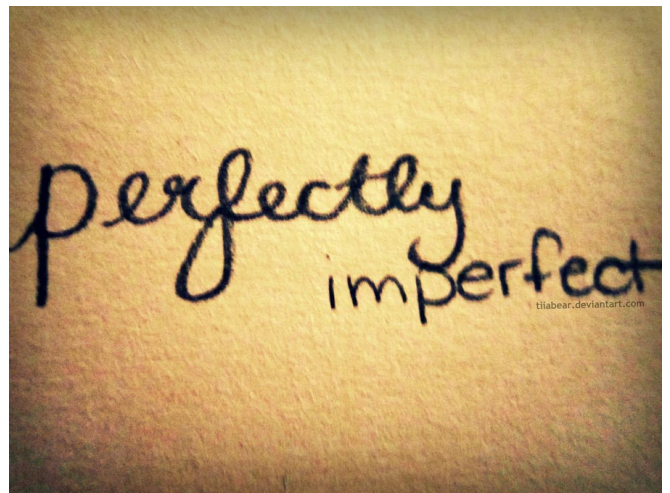 perfectly
imperfect
tiiabear.deviantart.com